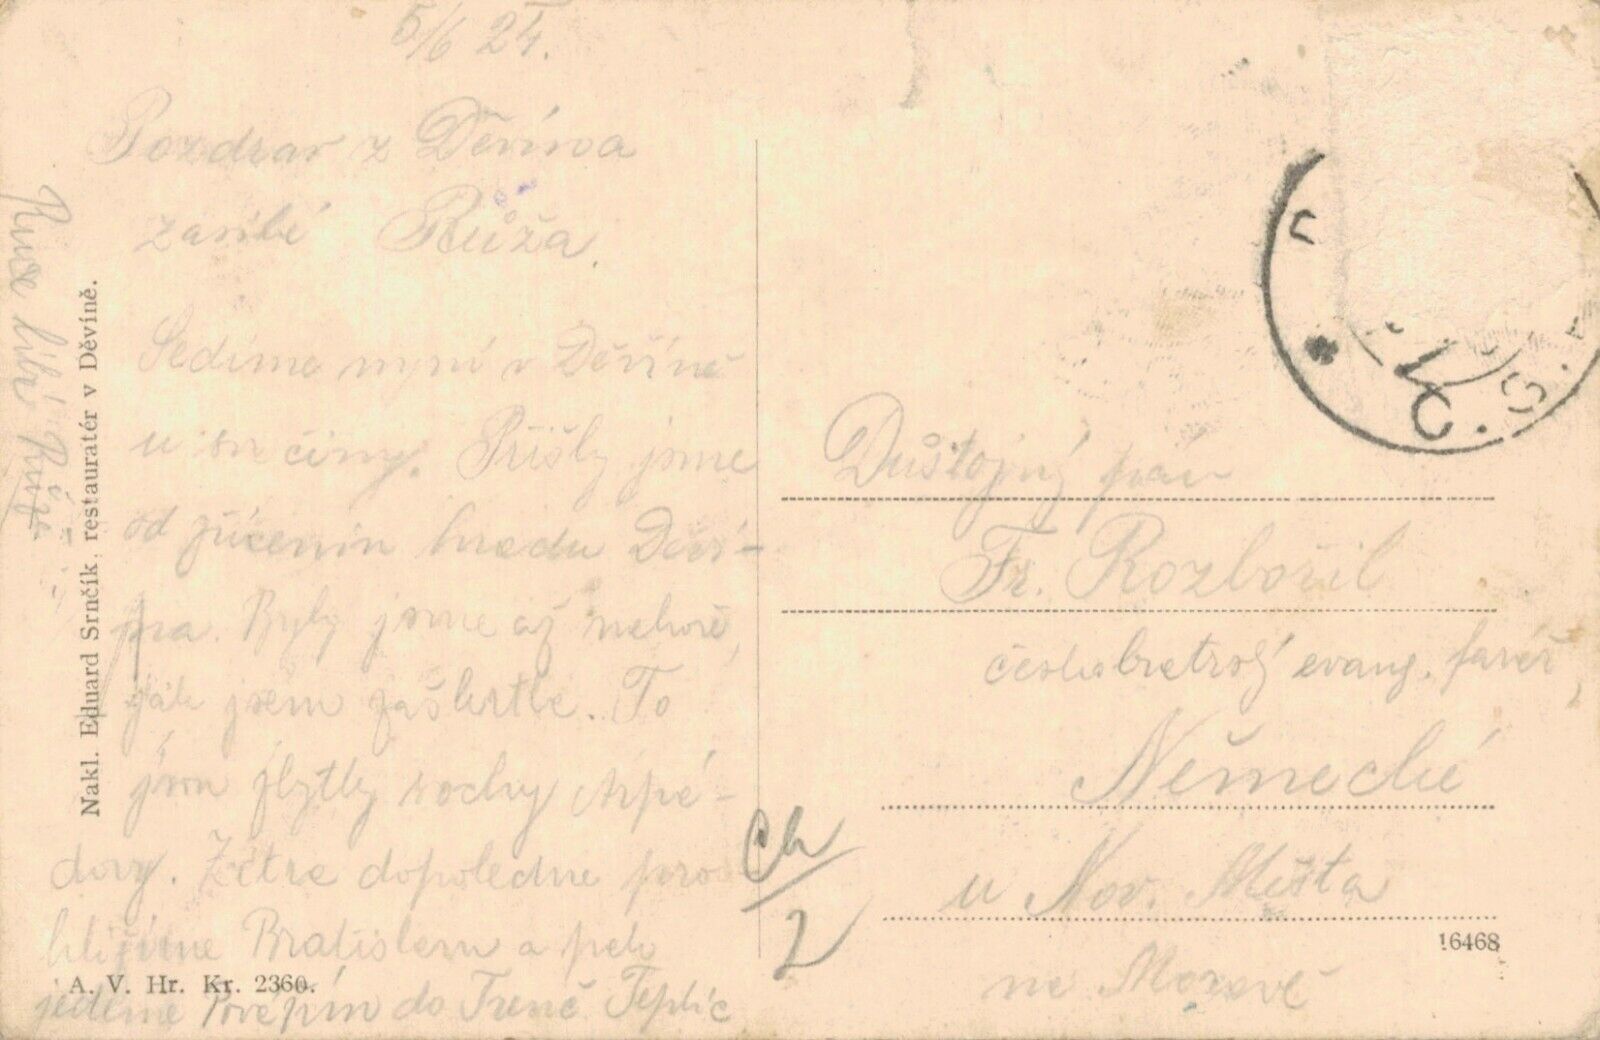 5/6 24.
Pozdrav z Děvína
zasílá Růža.
Sedíme nyní v Děvíně
u sv číny. Přišly jsme
od zřícenin hradu Děví-
na. Byly jsme až nahoře,
jak jsem zaškrtla. To
jsou zbytky sochy Arpá-
dovy. Zítra dopoledne pro
hlížíme Bratislavu a pak
jedeme do Trenč. Teplic
Ruce líbá Růža
Nakl. Eduard Srnčík, restauratér v Děvíně.
A. V. Hr. Kr. 2360.
Ch/2
Důstojný pán
Fr. Rozbořil
českobratrský evang. farář,
Německé
u Nov. Města
na Moravě
16468